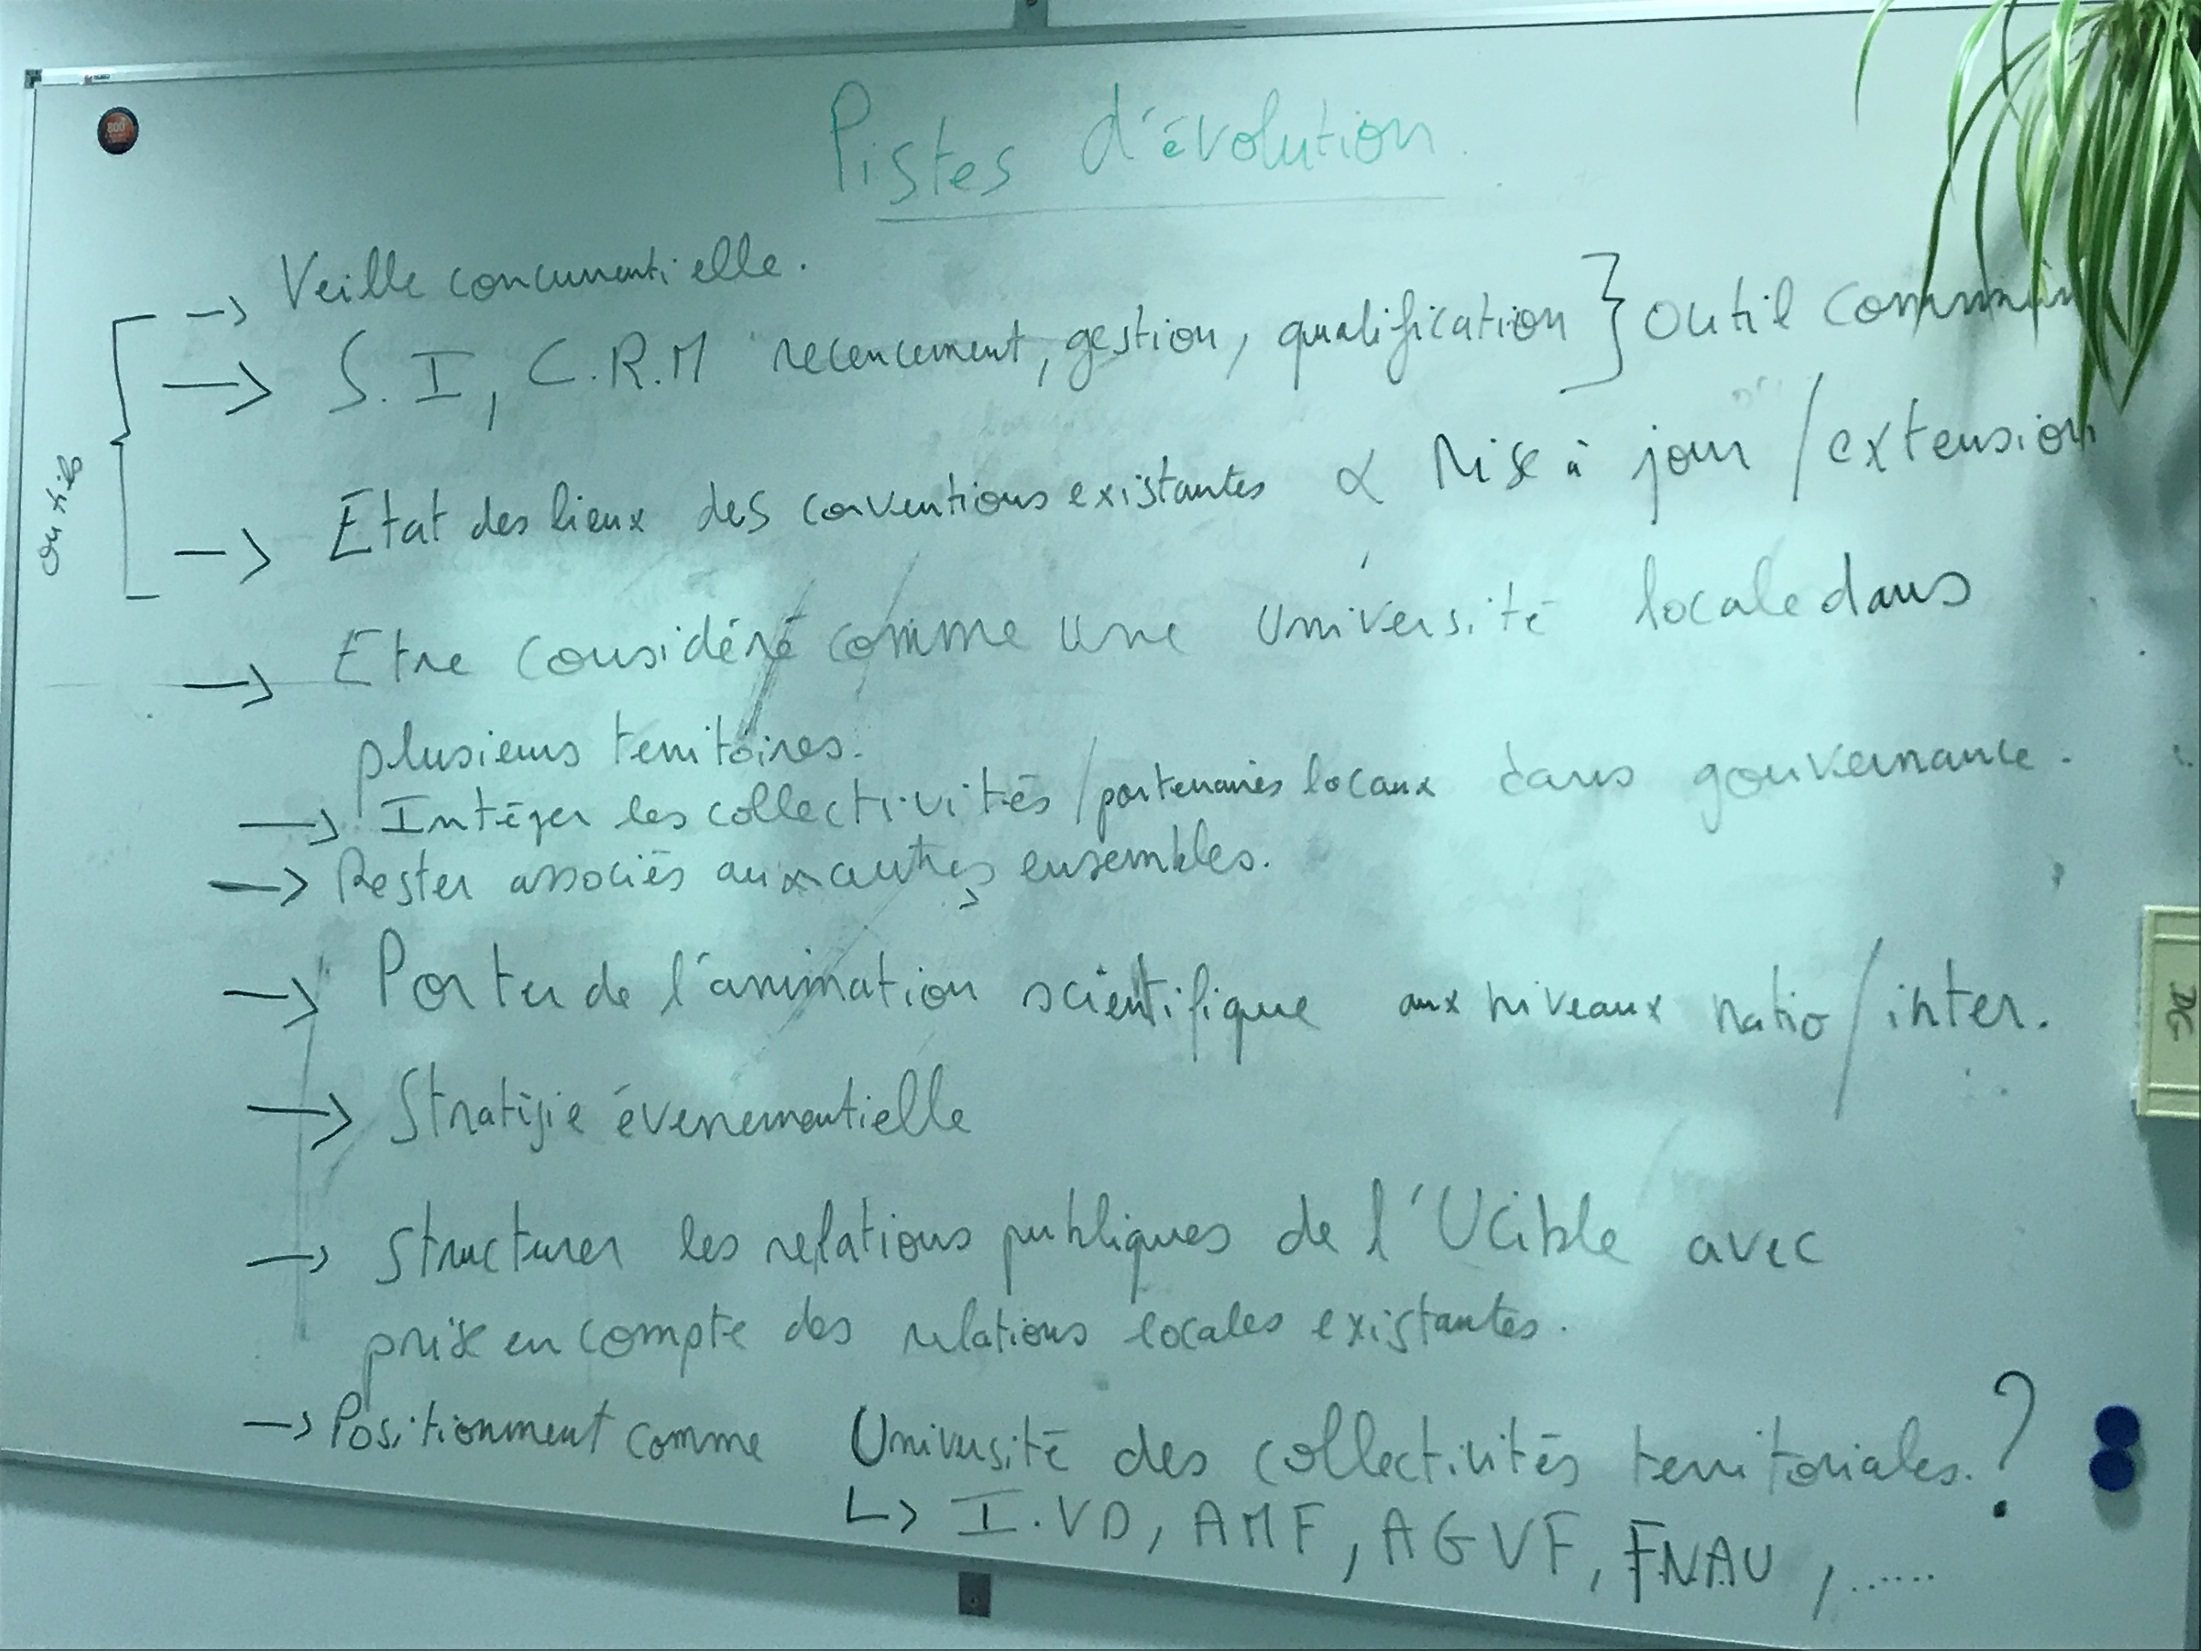 Pistes d'évolution.
→ Veille concurrentielle.
→ S.I, C.R.M recencement, gestion, qualification } outil commun
outils
→ Etat des lieux des conventions existantes & Mise à jour / extension
→ Etre considéré comme une université locale dans
plusieurs territoires.
→ Intéger les collectivités / partenaires locaux dans gouvernance.
→ Rester associés aux autres ensembles.
→ Porter de l'animation scientifique aux niveaux natio / inter.
→ Stratégie évenementielle
→ Structurer les relations publiques de l'UCible avec
prise en compte des relations locales existantes.
→ Positionment comme Université des collectivités territoriales. ?
↳ I.VD, AMF, AGVF, FNAU, ......
DG
800